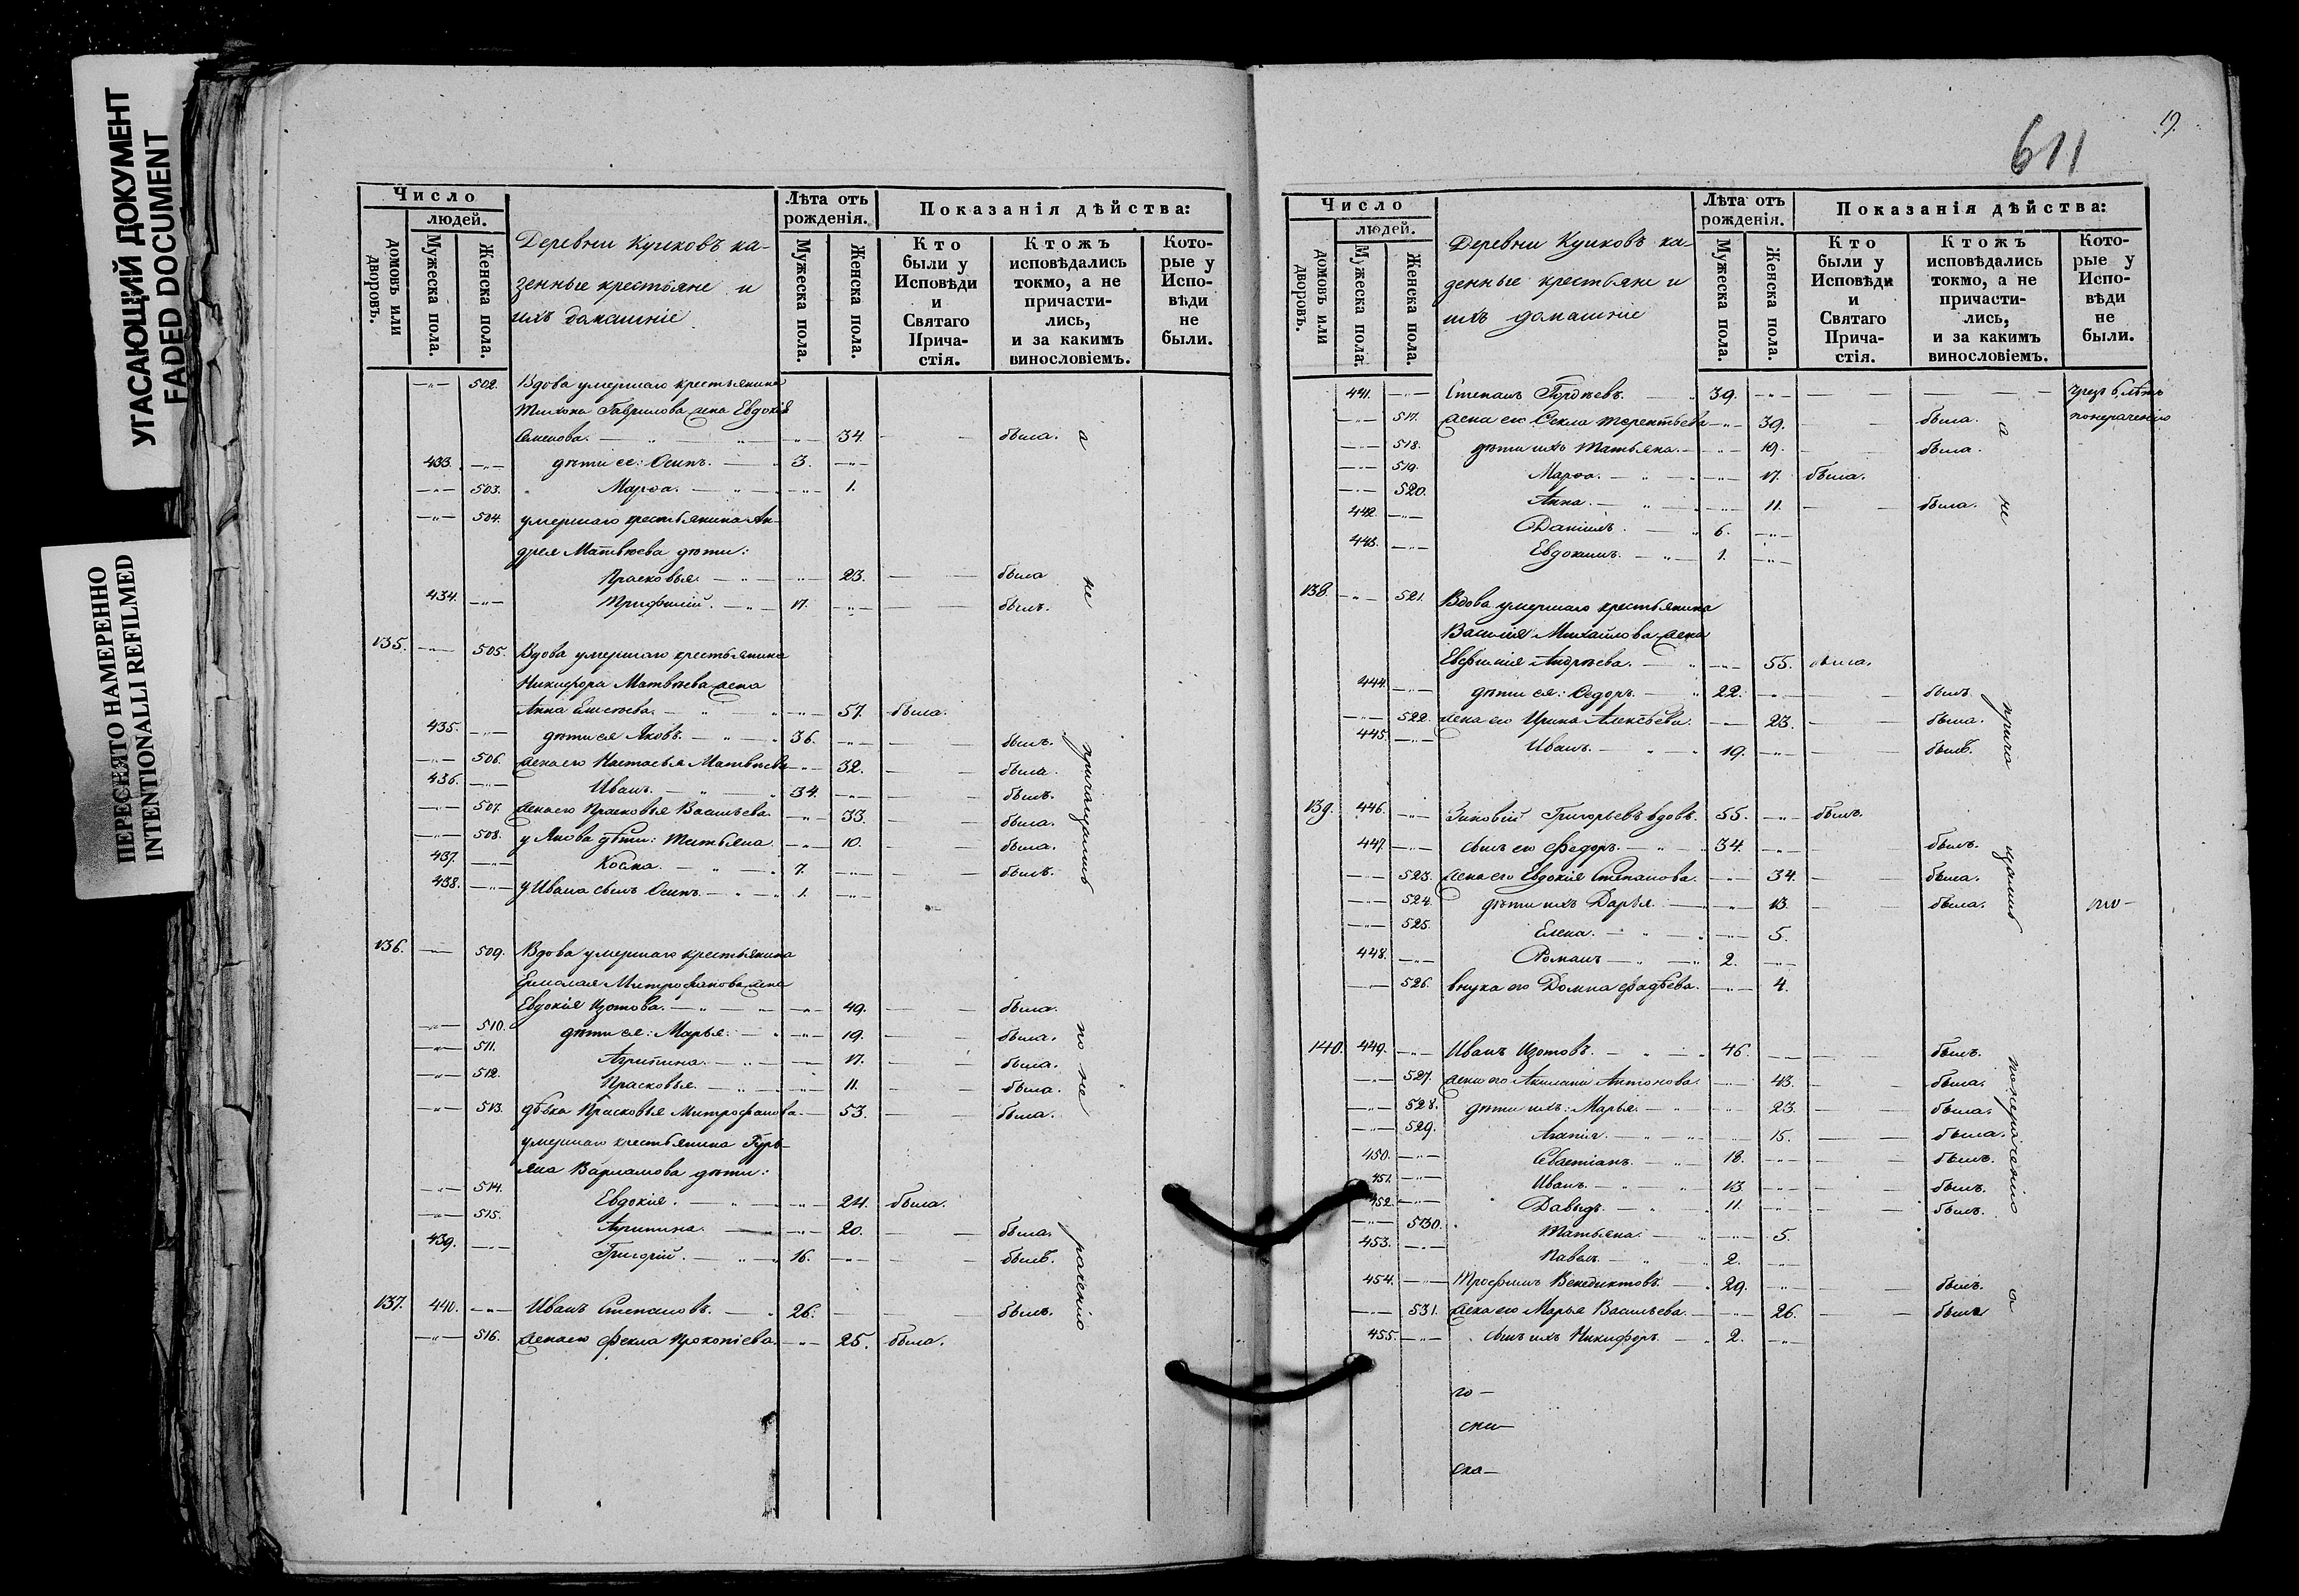 УГАСАЮЩИЙ ДОКУМЕНТ
FADED DOCUMENT
ПЕРЕСНЯТО НАМЕРЕННО
INTENTIONALLI REFILMED
Число
людей.
домовъ или дворовъ.
Мужеска пола.
Женска пола.
Деревни Куиковъ ка-
зенные крестьяне и
ихъ домашніе
Лѣта отъ рожденія.
Мужеска пола.
Женска пола.
Показанія дѣйства:
Кто были у Исповѣди и Святаго Прича- стія.
Ктожъ исповѣдались токмо, а не причасти- лись, и за какимъ винословіемъ.
Кото- рые у Испо- вѣди не были.
—"— 502. Вдова умершаго крестьянина
Тихона Гаврилова жена Евдокія
Семенова. — " — " —"— 34. — — была.
433. —"— дѣти ее: Осипъ. — 3. —"—
—"— 503. Марѳа. — " — —"— 1.
—"— 504. умершаго крестьянина Ан-
дрея Матвѣева дѣти:
Прасковья. — " — —"— 23. — — была
434. —"— Трифилій. — " — 17. —"— — — былъ.
135. —"— 505. Вдова умершаго крестьянина
Никифора Матвѣева жена
Анна Елисѣева. — " — —"— 57. была.
435. —"— дѣти ея Яковъ. — " — 36. —"— — — былъ.
—"— 506. жена его Настасья Матвѣева —"— 32. — — была.
436. —"— Иванъ. — " — 34. —"— — — былъ.
—"— 507. жена его Прасковья Васильева. —"— 33. — — была.
—"— 508. у Якова дѣти: Татьяна —"— 10. — — была.
437. —"— Козма. — " — 7. —"— — — былъ.
438. —"— у Ивана сынъ Осипъ. — " — 1. —"—
136. —"— 509. Вдова умершаго крестьянина
Ермолая Митрофанова жена
Евдокія Изотова. — " — —"— 49. — — была.
—"— 510. дѣти ея: Марья: — —"— 19. — — была.
—"— 511. Агрипина. — " — —"— 17. — — была.
—"— 512. Прасковья. — " — —"— 11. — — была.
—"— 513. дѣвка Прасковья Митрофанова. — 53. — — была.
умершаго крестьянина Гурь-
яна Варламова дѣти:
—"— 514. Евдокія. — " —"— 24. была.
—"— 515. Агрипина. — —"— 20. — — была.
439. —"— Григорій. — " — 16. —"— — — былъ.
137. 440. —"— Иванъ Степановъ. — " 26. — — — былъ.
—"— 516. жена его Ѳекла Прокопіева. —"— 25. была.
а не причащались по не раченію
611
19.
Число
людей.
домовъ или дворовъ.
Мужеска пола.
Женска пола.
Деревни Куиковъ ка-
зенные крестьяне и
ихъ домашніе
Лѣта отъ рожденія.
Мужеска пола.
Женска пола.
Показанія дѣйства:
Кто были у Исповѣди и Святаго Прича- стія.
Ктожъ исповѣдались токмо, а не причасти- лись, и за какимъ винословіемъ.
Кото- рые у Испо- вѣди не были.
441. —"— Степанъ Гордѣевъ. — " 39. —"— — — — — чрезъ 6. лѣтъ
—"— 517. жена его Ѳекла Терентьева —"— 39. — — была. понераченію
—"— 518. дѣти ихъ Татьяна. — —"— 19. — — была.
—"— 519. Марѳа. — " — —"— 17. была.
—"— 520. Анна. — " — —"— 11. — — была.
442. —"— Даніилъ. — " 6. —"—
443. —"— Евдокимъ. — " — 1. —"—
138. —"— 521. Вдова умершаго крестьянина
Василія Михайлова жена
Евфимія Андрѣева. — " —"— 55. была.
444. —"— дѣти ея: Ѳедоръ. — " 22. —"— — — былъ.
—"— 522. жена его Ирина Алексѣева. —"— 23. — — была.
445. —"— Иванъ. — " — 19. —"— — — былъ.
139. 446. —"— Зиновій Григорьевъ вдовъ. 55. —"— былъ.
447. —"— сынъ его Ѳедоръ. — " 34. —"— — — былъ.
—"— 523. жена его Евдокія Степанова. —"— 34. — — была.
—"— 524. дѣти ихъ Дарья. — —"— 13. — — была.
—"— 525. Елена. — " — —"— 5.
448. —"— Романъ — " — 2. —"—
—"— 526. внука его Домна Ѳадѣева. —"— 4.
140. 449. —"— Иванъ Изотовъ. — " — 46. —"— — — былъ.
—"— 527. жена его Акилина Антонова. —"— 43. — — была.
—"— 528. дѣти ихъ: Марья. — —"— 23. — — была.
—"— 529. Агапія. — " — —"— 15. — — была.
450. —"— Севастіанъ. — " — 18. —"— — — былъ.
451. —"— Иванъ. — " — 13. —"— — — былъ.
452. —"— Давыдъ. — " — 11. —"— — — былъ.
—"— 530. Татьяна. — " —"— 5.
453. —"— Павелъ. — " 2. —"—
454. —"— Трофимъ Венедиктовъ. — 29. —"— — — былъ.
—"— 531. жена его Марья Васильева. —"— 26. — — была
455. —"— сынъ ихъ Никифоръ. — 2. —"—
а не прича щались понераченію
го —
ска —